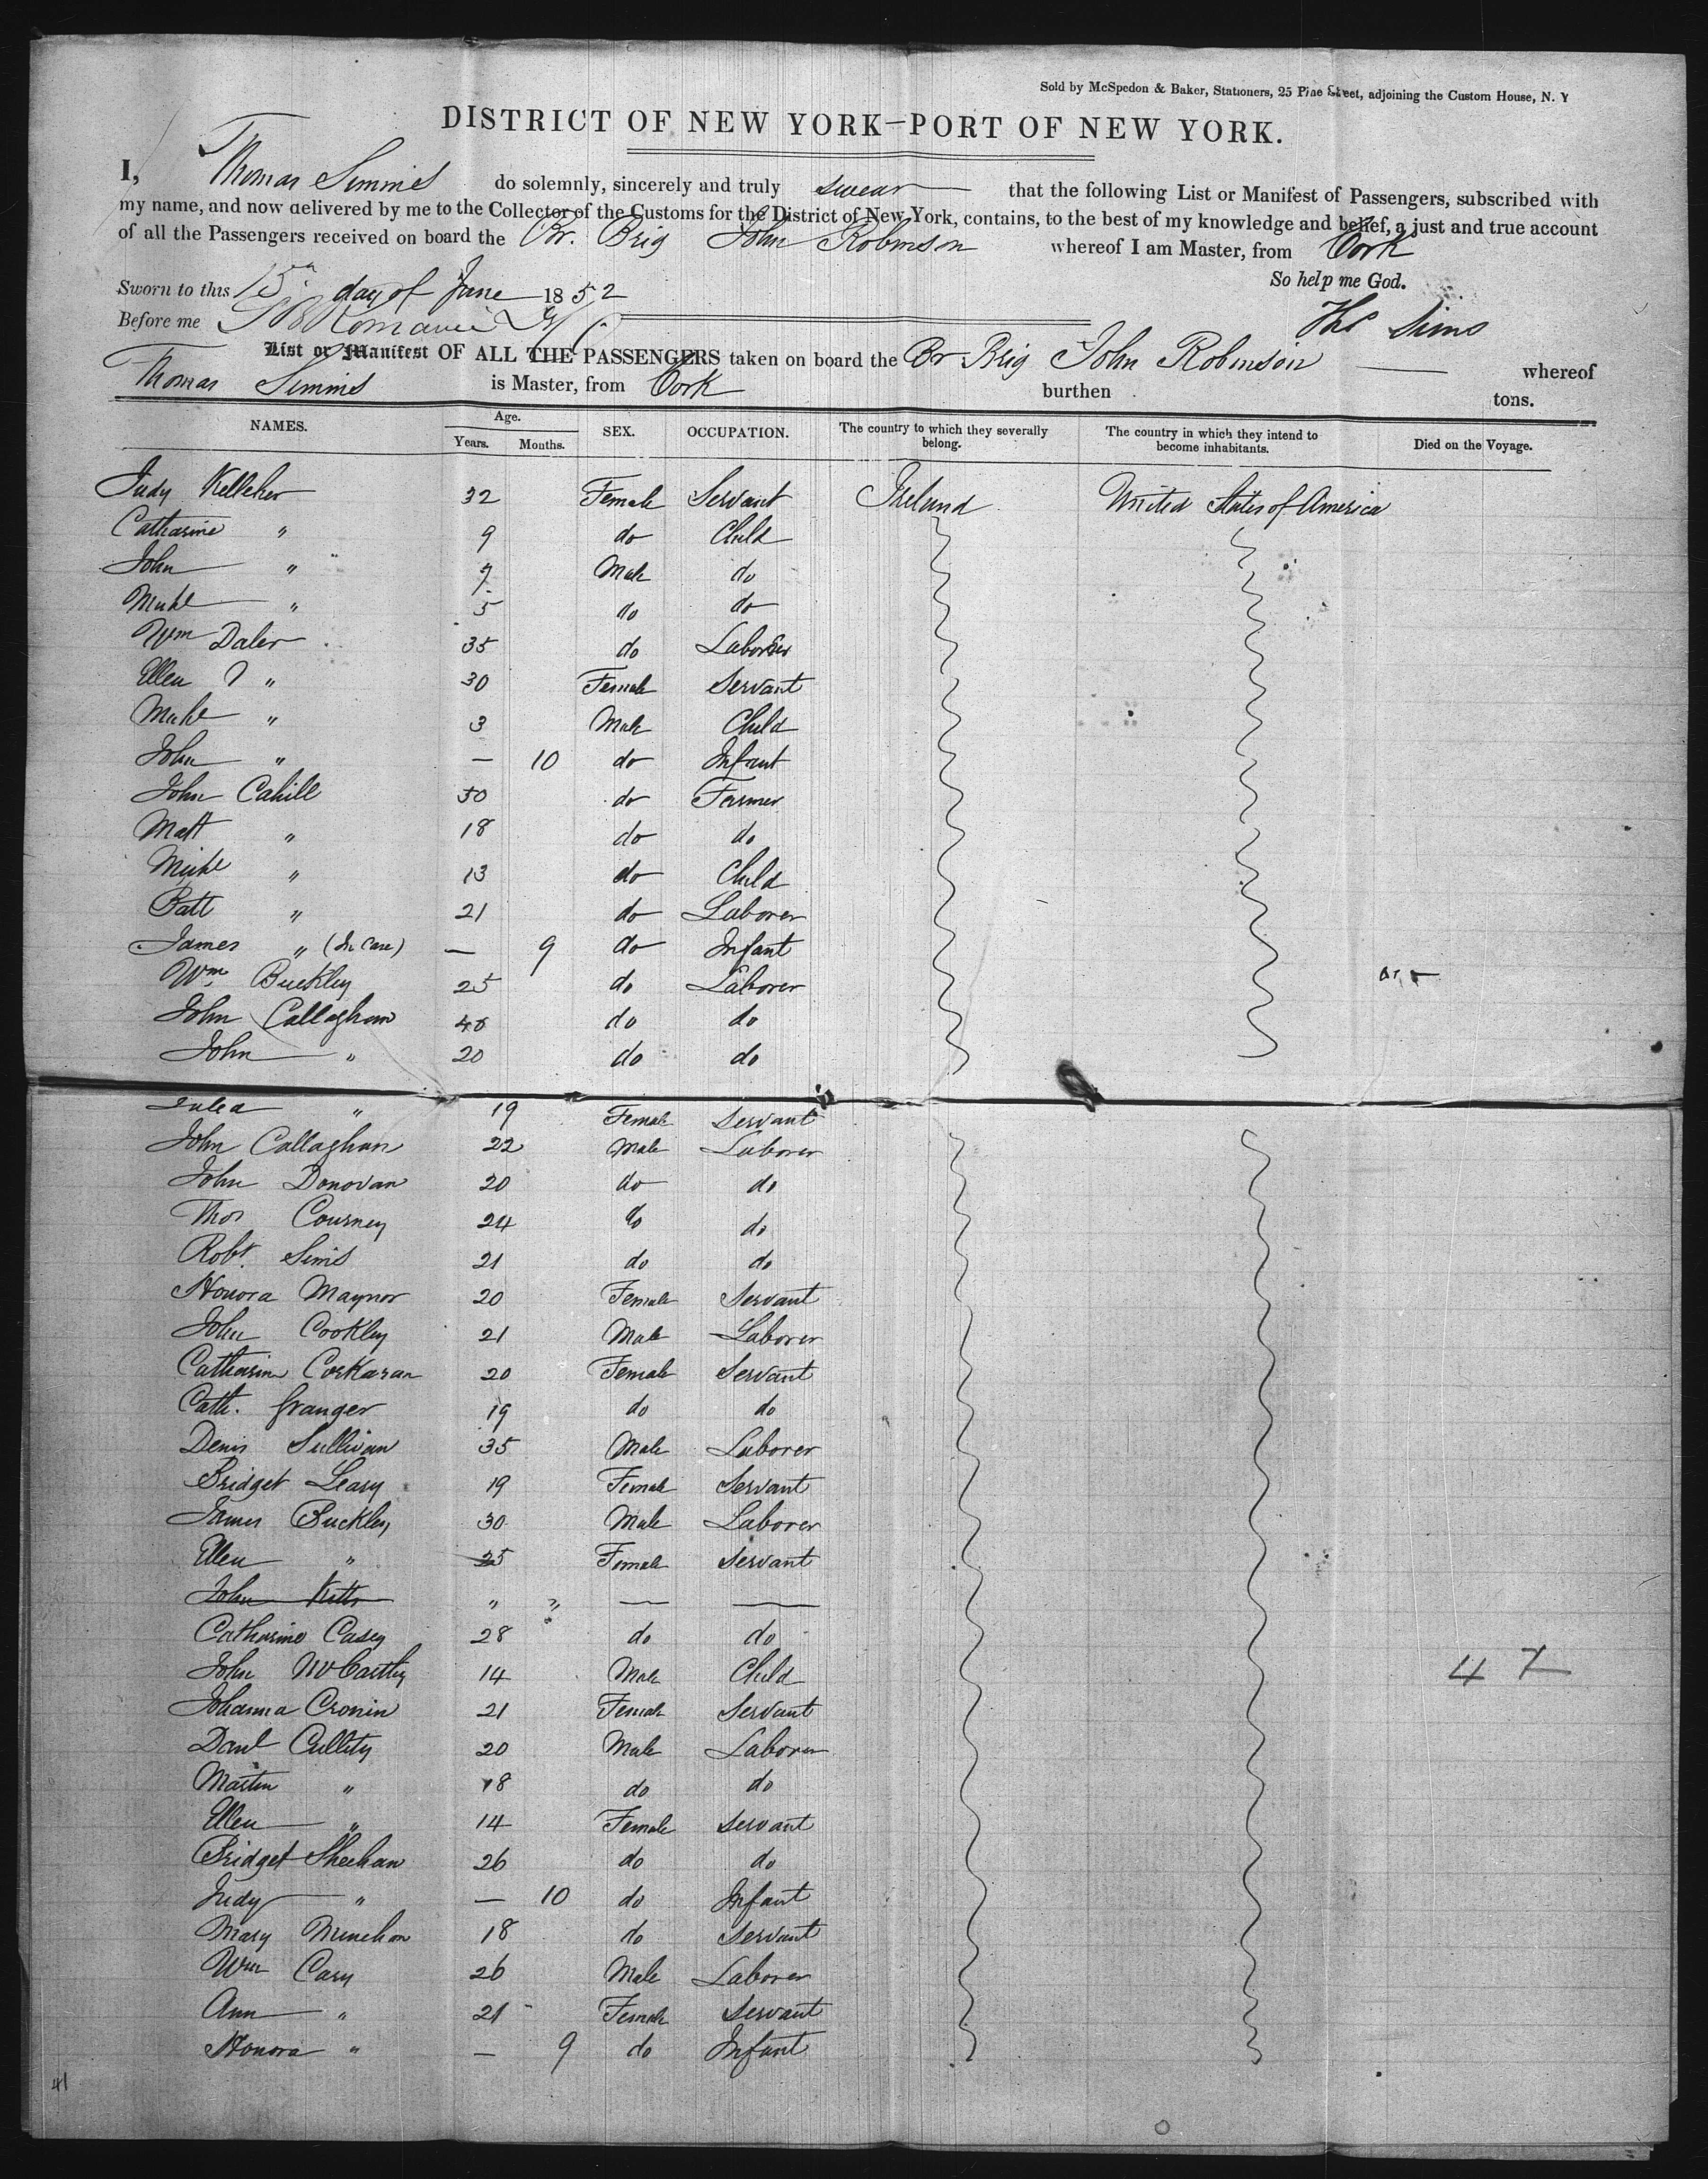 Sold by McSpedon & Baker, Stationers, 25 Pine Street, adjoining the Custom House, N. Y
DISTRICT OF NEW YORK—PORT OF NEW YORK.
I, Thomas Simms do solemnly, sincerely and truly swear that the following List or Manifest of Passengers, subscribed with
my name, and now delivered by me to the Collector of the Customs for the District of New York, contains, to the best of my knowledge and belief, a just and true account
of all the Passengers received on board the Br. Brig John Robinson whereof I am Master, from Cork
So help me God.
Sworn to this 15th day of June 1852
Before me
Ths Sims
List or Manifest OF ALL THE PASSENGERS taken on board the Br Brig John Robinson whereof
Thomas Simms is Master, from Cork burthen tons.
NAMES. Age. Years. Months. SEX. OCCUPATION. The country to which they severally belong. The country in which they intend to become inhabitants. Died on the Voyage.
Judy Kelleher 32 Female Servant Ireland United States of America
Catharine " 9 do Child
John " 7 Male do
Michl " 5 do do
Wm Daler 35 do Laborer
Ellen " 30 Female Servant
Michl " 3 Male Child
John " — 10 do Infant
John Cahill 50 do Farmer
Matt " 18 do do
Michl " 13 do Child
Patt " 21 do Laborer
James " (In Care) — 9 do Infant
Wm Buckley 25 do Laborer
John Callaghan 40 do do
John " 20 do do
" 19 Female Servant
John Callaghan 22 Male Laborer
John Donovan 20 do do
Thos Courney 24 do do
Robt. Sims 21 do do
Honora Maynor 20 Female Servant
John Cookley 21 Male Laborer
Catharine Corkaran 20 Female Servant
Cath. Granger 19 do do
Denis Sullivan 35 Male Laborer
Bridget Leary 19 Female Servant
James Buckley 30 Male Laborer
Ellen " 25 Female Servant
John Kitts " " — —
Catharine Casey 28 do do
John McCarthy 14 Male Child
47
Johanna Cronin 21 Female Servant
Danl Cullity 20 Male Laborer
Martin " 18 do do
Ellen " 14 Female Servant
Bridget Sheehan 26 do do
Judy " — 10 do Infant
Mary Minehan 18 do Servant
Wm Cary 26 Male Laborer
Ann " 21 Female Servant
Honora " — 9 do Infant
41